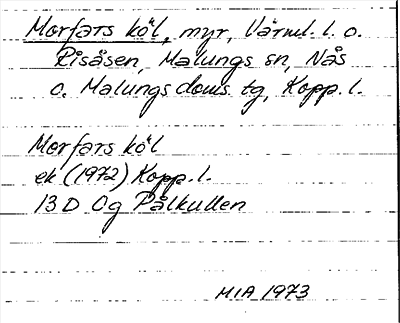 Morfars köl, myr, Värml. l. o.
Risåsen, Malungs sn, Nås
o. Malungs doms tg, Kopp. l.
Morfars köl
ek (1972) Kopp. l.
13 D Og Pålkullen
MIA 1973